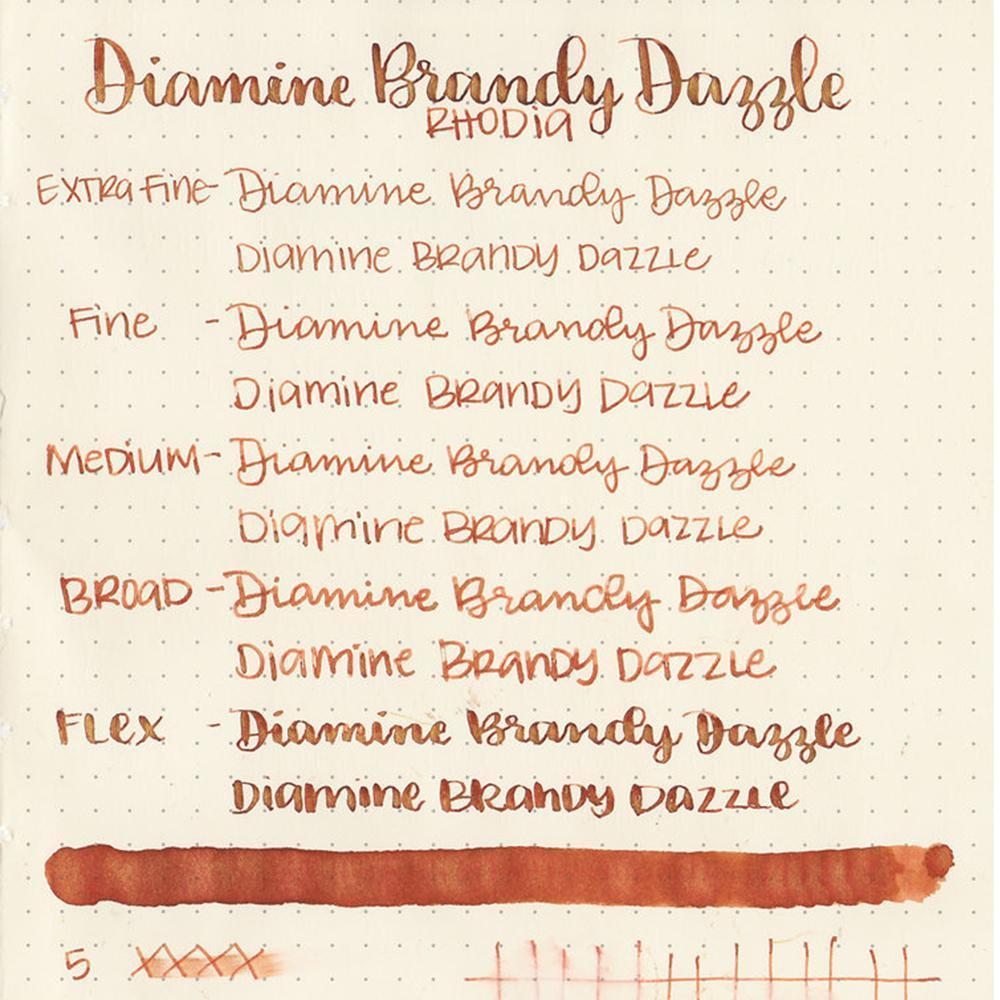 Diamine Brandy Dazzle
RHODIA
EXTRA FINE - Diamine Brandy Dazzle
Diamine BRANDY Dazzle
Fine - Diamine Brandy Dazzle
Diamine BRANDY Dazzle
Medium - Diamine Brandy Dazzle
Diamine BRANDY Dazzle
BROAD - Diamine Brandy Dazzle
Diamine BRANDY Dazzle
FLex - Diamine Brandy Dazzle
Diamine BRANDY Dazzle
5 XXXX